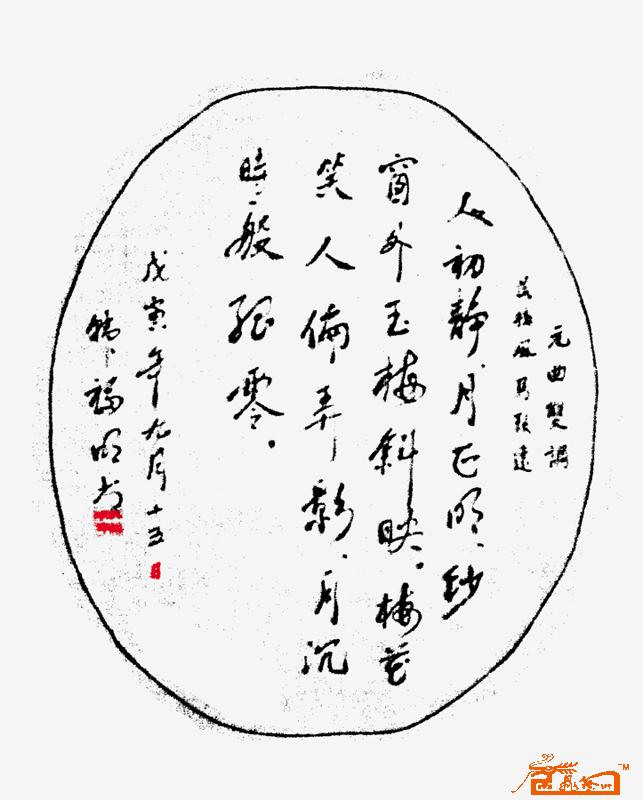 元曲雙調
落梅風馬致遠
人初靜月正明、紗
窗外玉梅斜映。梅花
笑人偷弄影、月沉
時一般孤零。
戊寅年九月十五
福明书